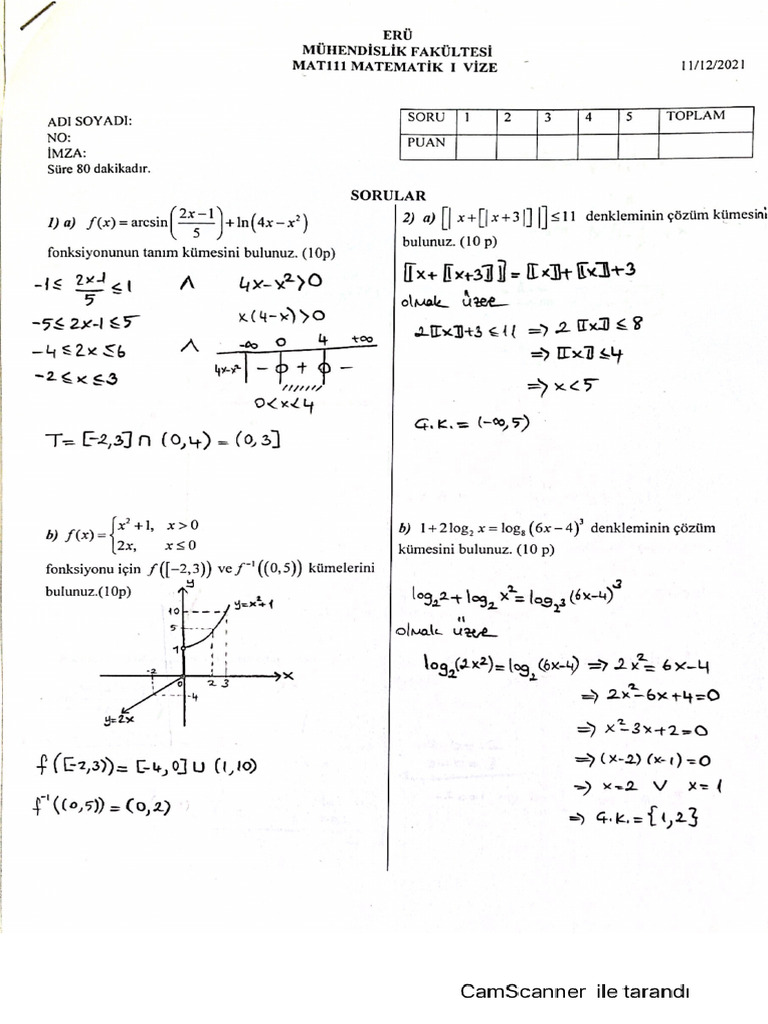 ERÜ
MÜHENDİSLİK FAKÜLTESİ
MAT111 MATEMATİK I VİZE
11/12/2021
ADI SOYADI:
NO:
İMZA:
Süre 80 dakikadır.
SORU 1 2 3 4 5 TOPLAM
PUAN
SORULAR
1) a) f(x) = arcsin((2x−1)/5) + ln(4x−x²)
fonksiyonunun tanım kümesini bulunuz. (10p)
-1≤ (2x-1)/5 ≤1 ∧ 4x-x²>0
-5≤2x-1≤5 x(4-x)>0
-4≤2x≤6 ∧ -∞ 0 4 +∞
-2≤x≤3 4x-x² - + -
0<x<4
T= [-2,3]∩(0,4) = (0,3]
b) f(x) = { x²+1, x>0
2x, x≤0
fonksiyonu için f([−2,3)) ve f⁻¹((0,5)) kümelerini
bulunuz.(10p)
y
10 y=x²+1
5
1
-2 0 2 3 x
-4
y=2x
f([-2,3))= [-4,0]∪(1,10)
f⁻¹((0,5)) = (0,2)
2) a) [|x+[|x+3|]|]≤11 denkleminin çözüm kümesini
bulunuz. (10 p)
⟦x+⟦x+3⟧⟧ = ⟦x⟧+⟦x⟧+3
olmak üzere
2⟦x⟧+3≤11 ⇒ 2⟦x⟧≤8
⇒ ⟦x⟧≤4
⇒ x<5
Ç.K.= (-∞,5)
b) 1+2log₂ x = log₈(6x−4)³ denkleminin çözüm
kümesini bulunuz. (10 p)
log₂2+log₂x²=log₂³(6x-4)³
olmak üzere
log₂(2x²)=log₂(6x-4) ⇒ 2x²=6x-4
⇒ 2x²-6x+4=0
⇒ x²-3x+2=0
⇒ (x-2)(x-1)=0
⇒ x=2 ∨ x=1
⇒ Ç.K.={1,2}
CamScanner ile tarandı